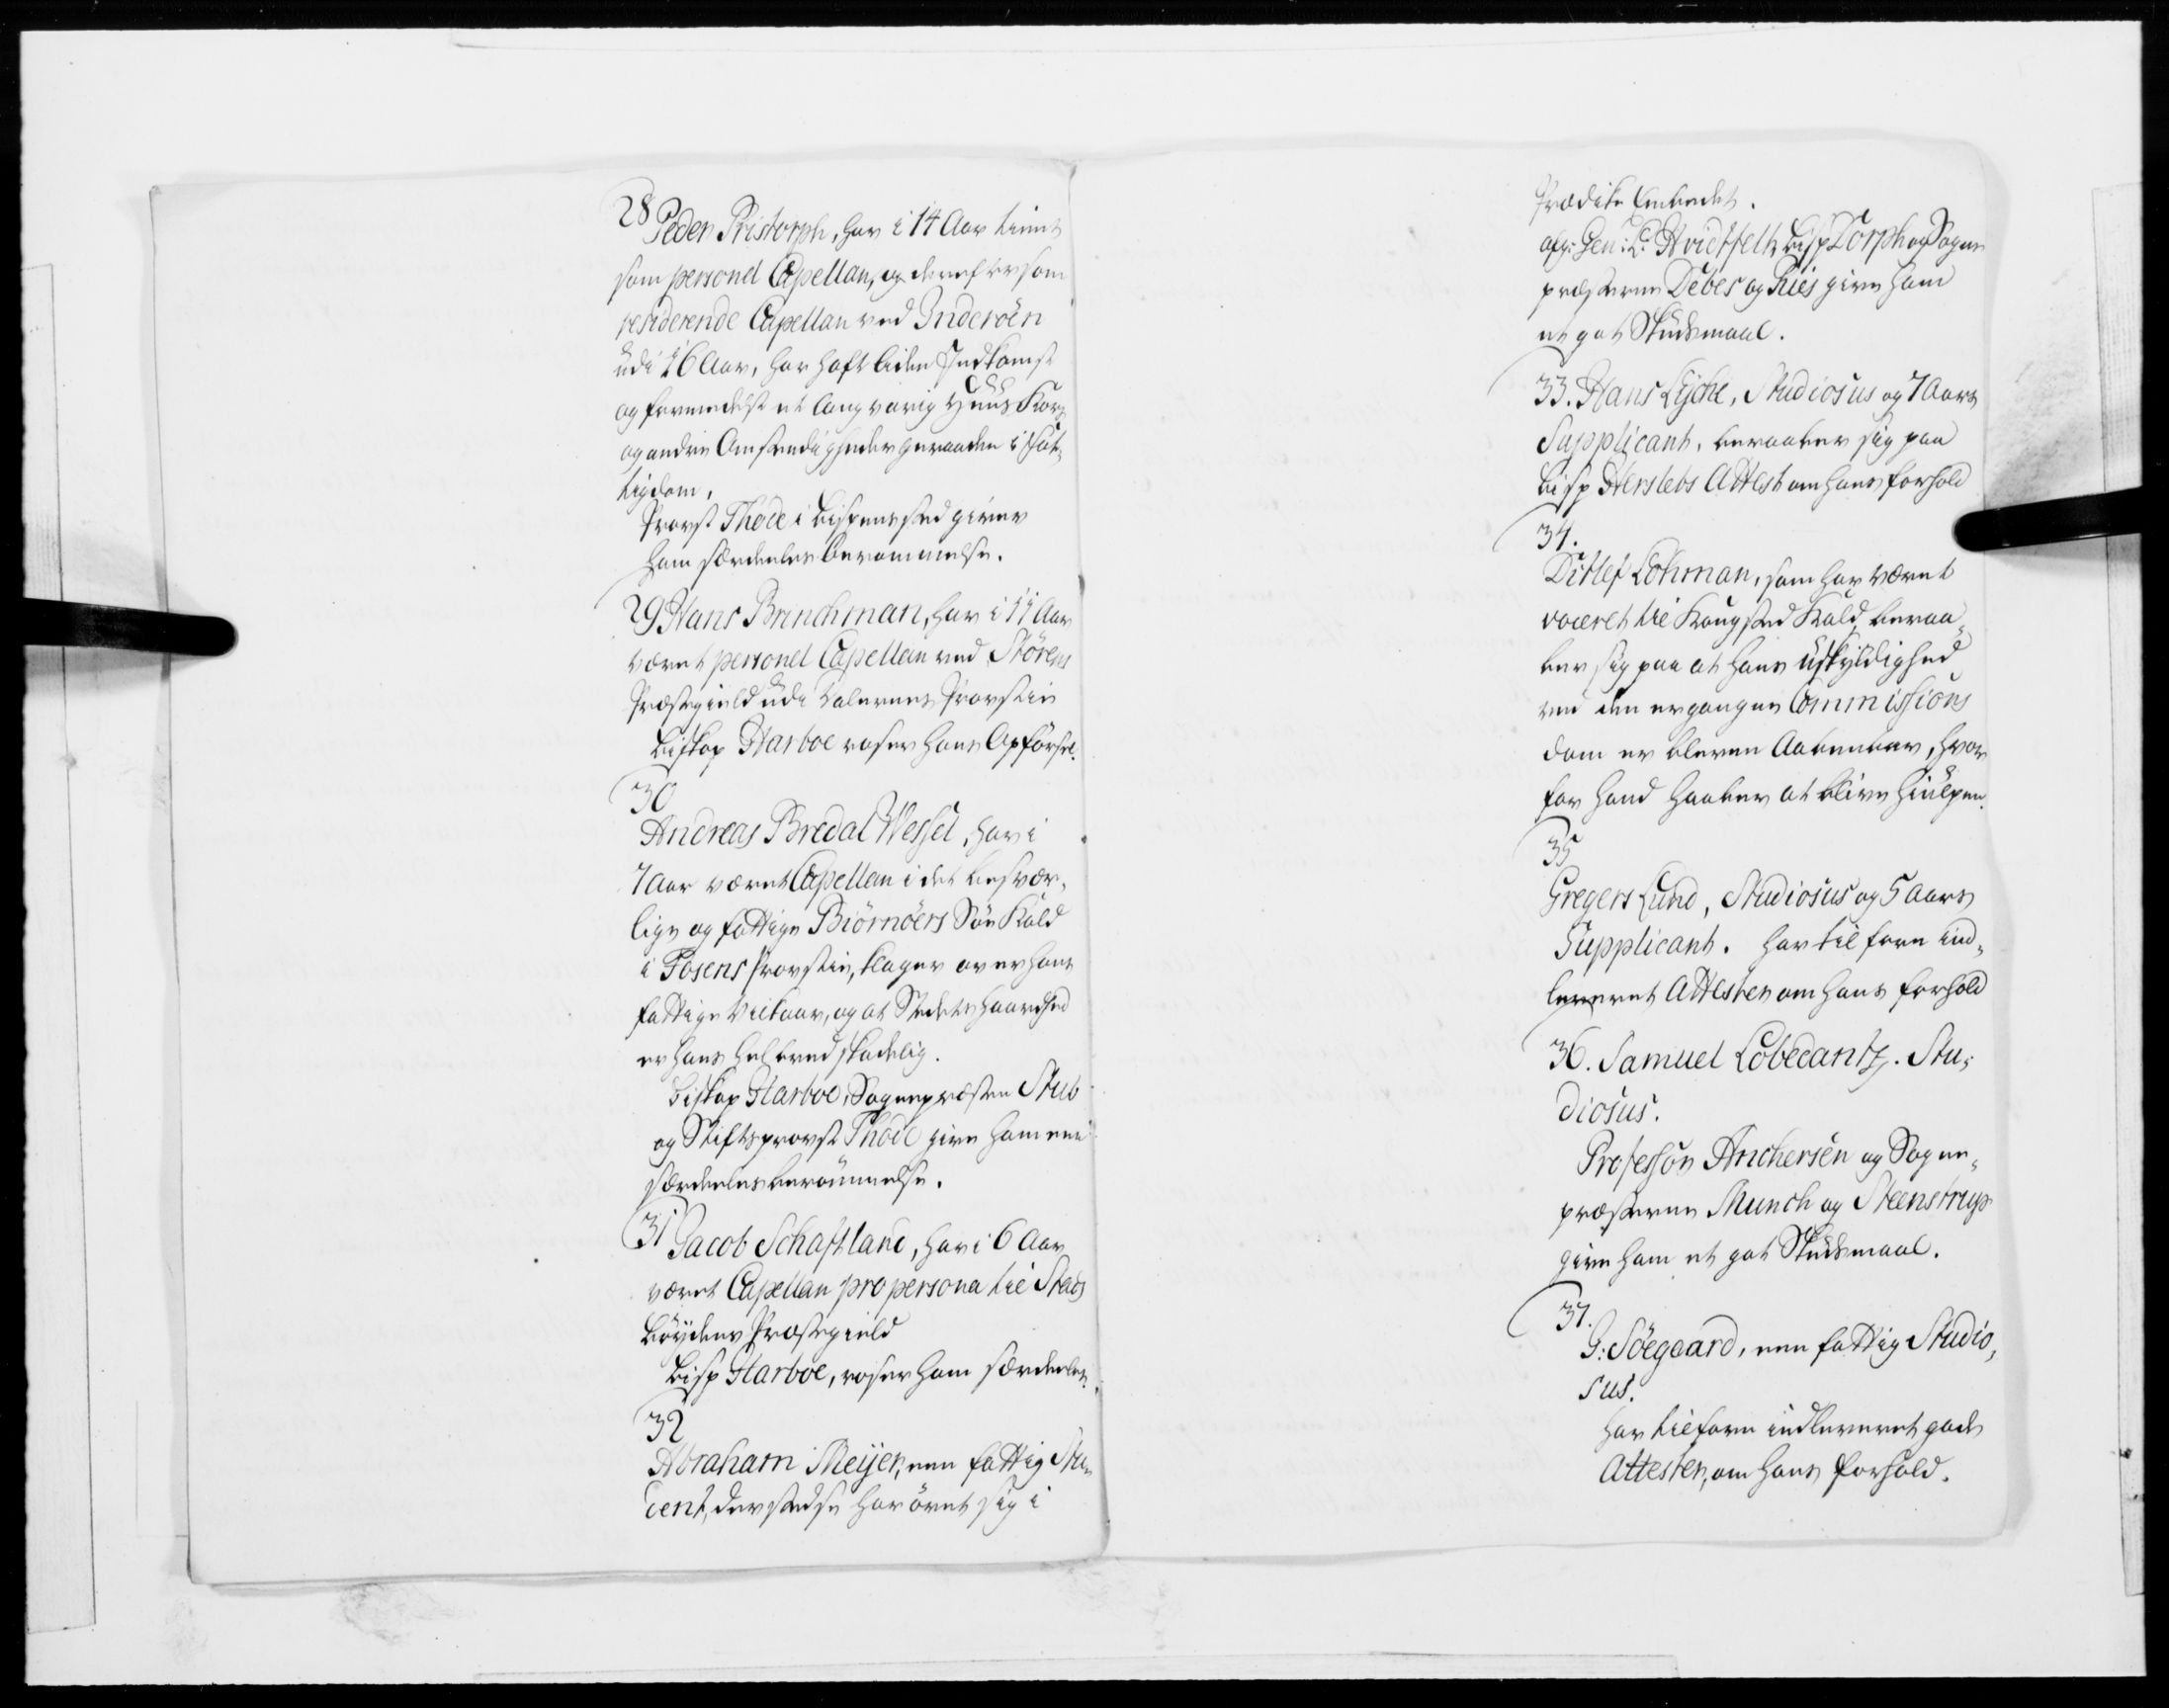 28
Peder Pristorph, har i 14 Aar tient
som personel Capellan, og derefter som
residerende Capellan ved Inderöen
udi 16 Aar, har haft liden Indkomst
og formedelst et langvarig Huus Kors
og andre Omstændigheder geraaden i fat-
tigdom.
Provst Thode i Bispens sted giver
ham særdeles berømmelse.
29 Hans Brinchman, har i 11 Aar
været personel Capellan ved Störens
Præstegield udi Dalernes Provstie
Biskop Harboe roser hans Opförsel.
30
Andreas Bredal Wessel, har i
7 Aar været Capellan i det besvær-
lige og fattige Biörnöers Söe Kald
i Fosens Provstie, klager over hans
fattige Vilkaar, og at Stedets haardhed
er hans helbred skadelig.
Biskop Harboe, Sognepræsten Stub
og Stiftsprovst Thode give ham een
særdeles berömmelse.
31 Jacob Schaftland, har i 6 Aar
været Capellan pro persona til Stads
böydens Præstegield
Bisp Harboe, roser ham særdeles.
32
Abraham Meijer, een fattig Stu-
dent, der stedse har övet sig i
Prædike Embedet.
afg: Gen: L: Hvidtfelt, Bisp Dorph og Sogne
præsterne Debes og Ries give ham
et got Skudsmaal.
33. Hans Lyche, Studiosus og 7 Aars
Supplicant, beraaber sig paa
Bisp Herslebs Attest om hans forhold
34.
Ditlef Lohman, som har været
voceret til Kongsted Kald, beraa-
ber sig paa at hans uskyldighed
ved den ergangne Commissions
dom er bleven Aabenbar, hvor
for hand haaber at blive hiulpen.
35
Gregers Lund, Studiosus og 5 Aars
Supplicant. har til forn ind-
leveret Attester om hans forhold
36. Samuel Lobedantz. Stu-
diosus.
Professor Anchersen og Sogne-
præsterne Munch og Steenstrup
give ham et got Skudsmaal.
37.
G: Söegaard, een fattig Studio-
sus.
har tilforn indleveret gode
Attester, om hans forhold.